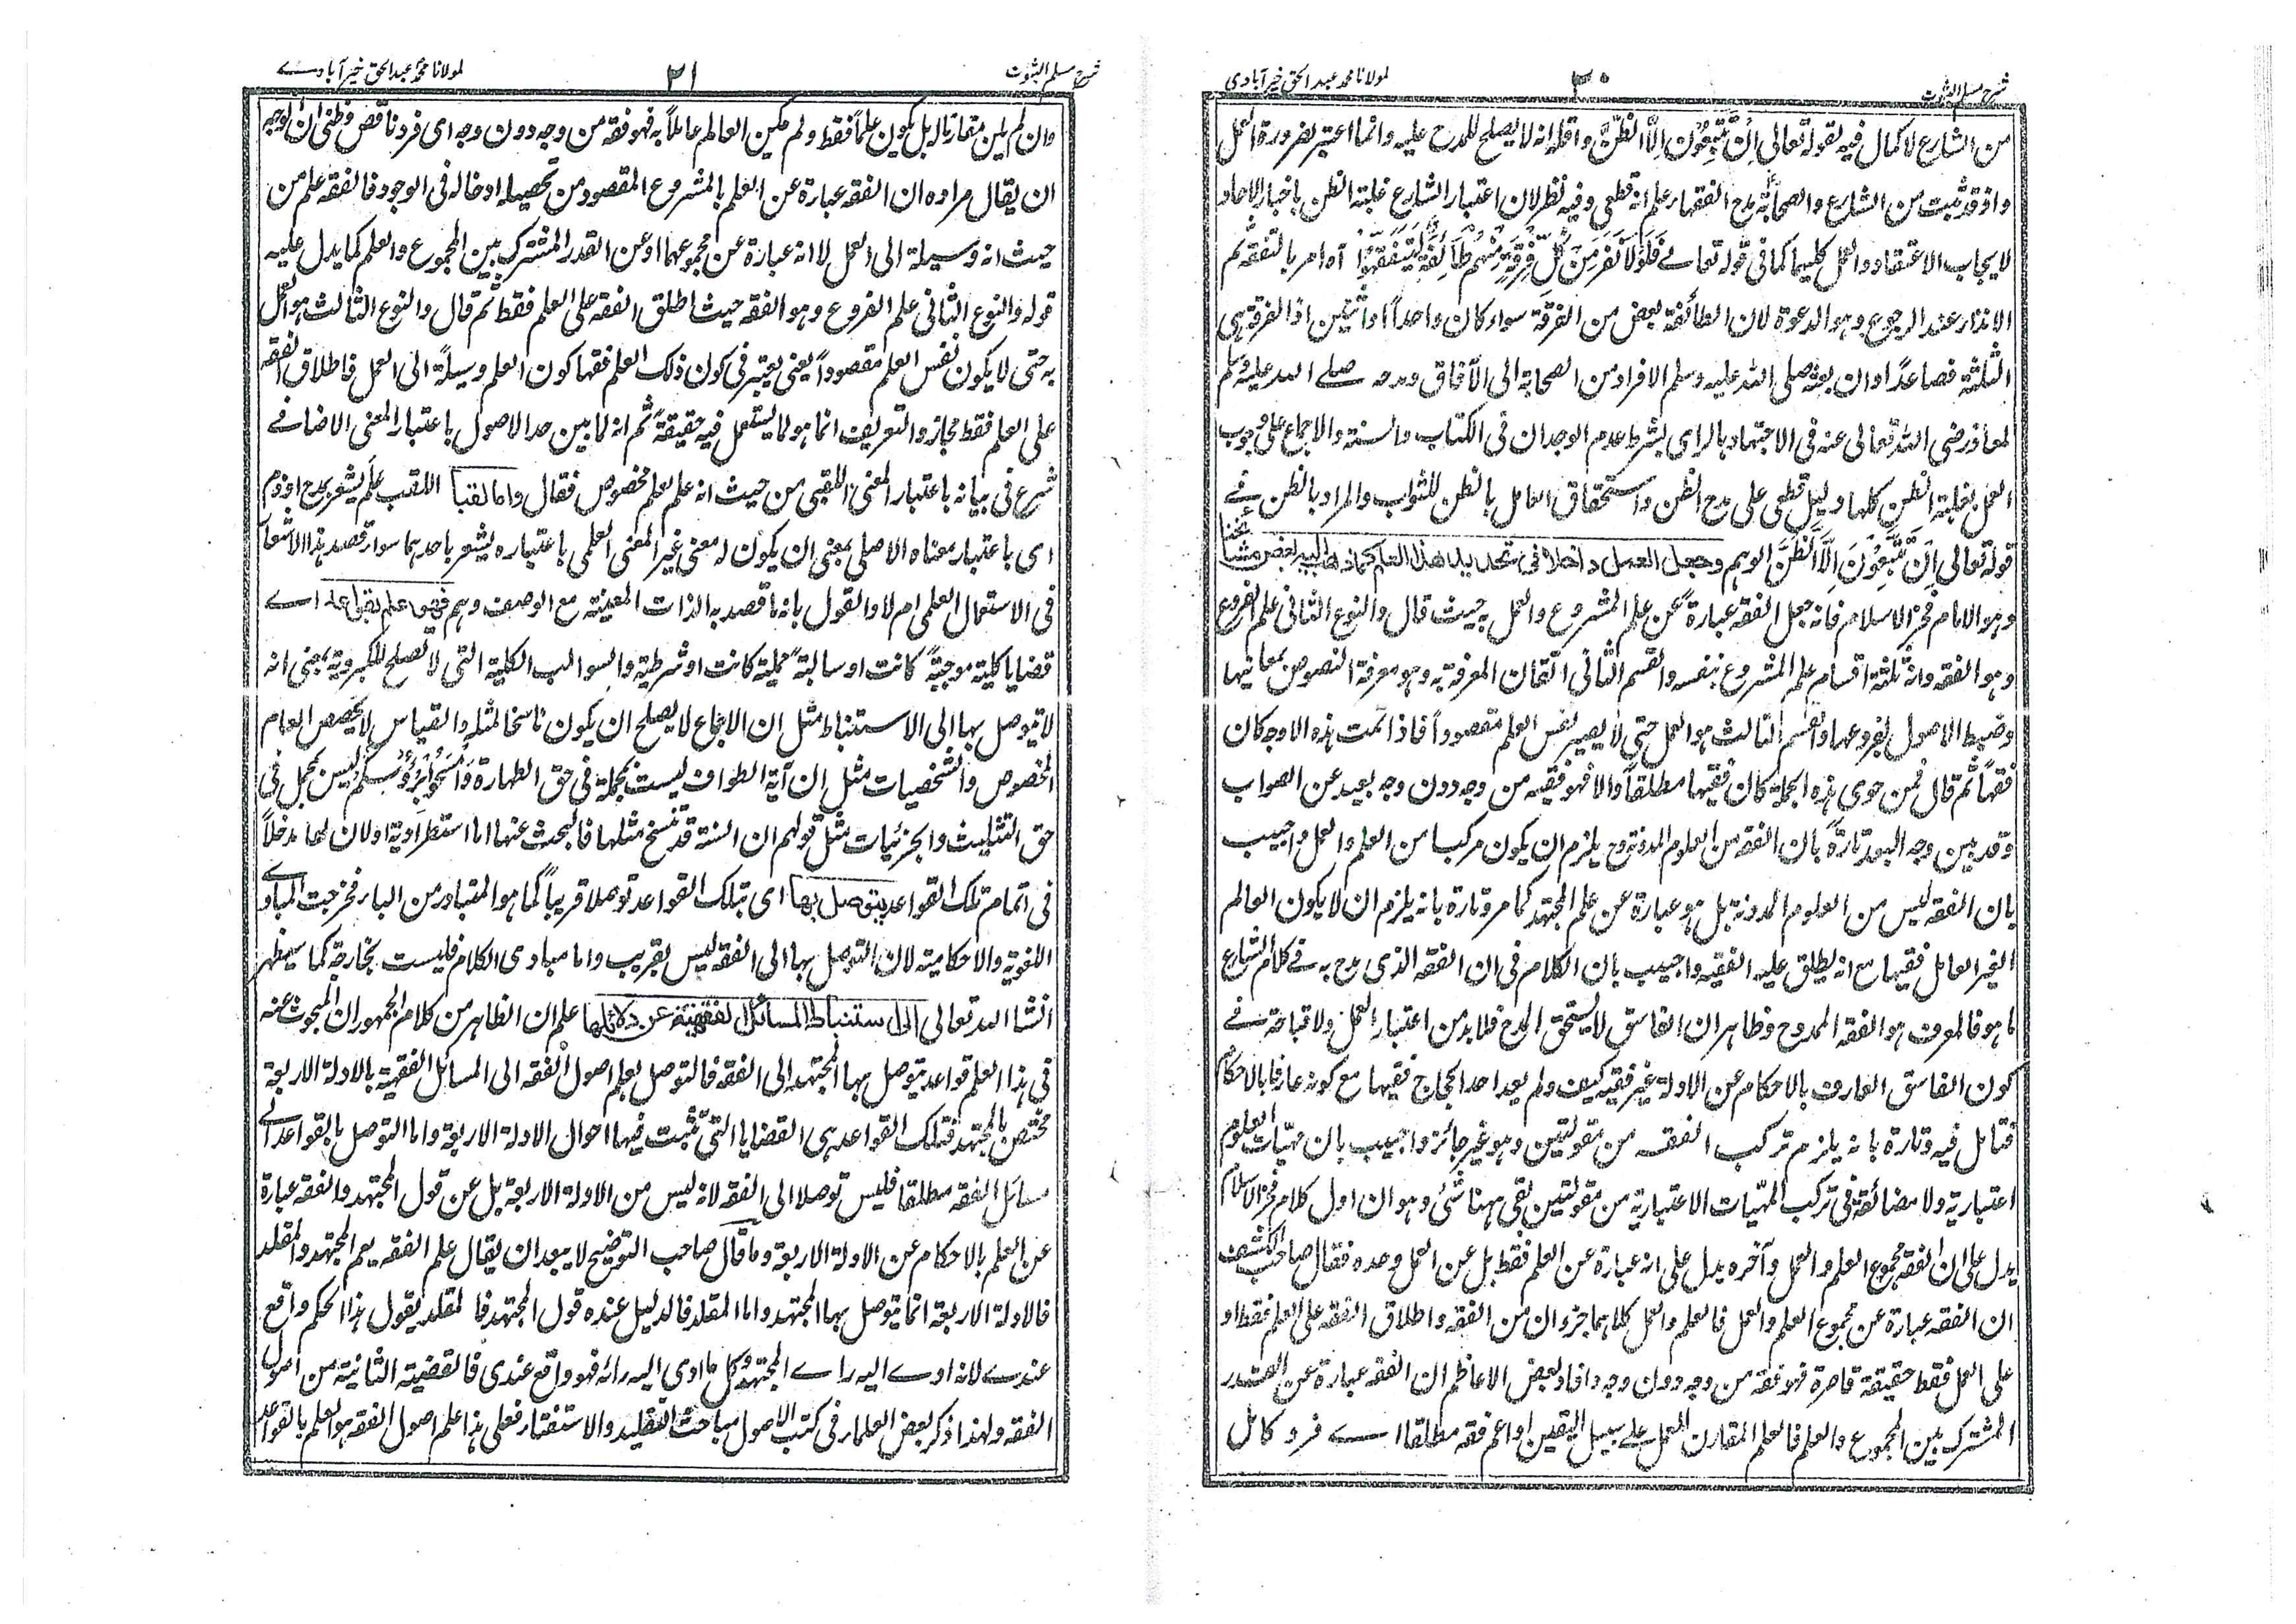 شرح مسلم الثبوت
۲۰
لمولانا محمد عبد الحق خیرآبادی
من الشارع لا کمال فیه لقوله تعالی اِنْ تَتَّبِعُوْنَ اِلَّا الظَّنَّ واقله انه لا یصلح للمدح علیه وانما اعتبر بضرورة العمل
واذ قد ثبت من الشارع والصحابة مدح الفقهاء علم انه قطعی وفیه نظر لان اعتبار الشارع غلبة الظن باخبار الآحاد
لایجاب الاعتقاد والعمل کلیهما کما فی قوله تعالے فَلَوْلَا نَفَرَ مِنْ كُلِّ فِرْقَةٍ مِّنْهُمْ طَآئِفَةٌ لِّيَتَفَقَّهُوْا آه امر بالتفقه ثم
الانذار عند الرجوع وهو الدعوة لان الطائفة بعض من الفرقة سواء کان واحداً او اثنین اذ الفرقة هی
الثلثة فصاعداً وان بعثه صلی الله علیه وسلم الافراد من الصحابة الی الآفاق ومدحه صلے الله علیه وسلم
لمعاذ رضی الله تعالی عنه فی الاجتهاد بالرای بشرط عدم الوجدان فی الکتاب والسنة والاجماع علی وجوب
العمل بغلبة الظن کلها دلیل قطعی علی مدح الظن واستحقاق العامل بالظن للثواب والمراد بالظن فے
قوله تعالی اِنْ تَتَّبِعُوْنَ اِلَّا الظَّنَّ الوهم وجعل العمل داخلا فی تحدید هذا العلم کما ذهب الیه بعض مشائخنا
وهو الامام فخر الاسلام فانه جعل الفقه عبارةً عن علم المشروع والعمل به حیث قال والنوع الثانی علم الفروع
وهو الفقه وانه ثلثة اقسام علم المشروع بنفسه والقسم الثانی اتقان المعرفة به وهو معرفة النصوص بمعانیها
وضبط الاصول بفروعها والقسم الثالث هو العمل حتی لا یصیر نفس العلم مقصوداً فاذا تمت هذه الاوجه کان
فقهاً ثم قال فمن حوی هذه الجملة کان فقیها مطلقاً والا فهو فقیه من وجه دون وجه بعید عن الصواب
وقد بین وجه البعد تارةً بان الفقه من العلوم المدونة وح یلزم ان یکون مرکبا من العلم والعمل واجیب
بان الفقه لیس من العلوم المدونة بل هو عبارة عن علم المجتهد کما مر وتارة بانه یلزم ان لا یکون العالم
الغیر العامل فقیها مع انه یطلق علیه الفقیه واجیب بان الکلام فی ان الفقه الذی مدح به فے کلام الشارع
ما هو فالمعرف هو الفقه الممدوح وظاهر ان الفاسق لا یستحق المدح فلابد من اعتبار العمل ولا قباحة فے
کون الفاسق العارف بالاحکام عن الادلة غیر فقیه کیف ولم یعد احد الحجاج فقیها مع کونه عارفا بالاحکام
فتامل فیه وتارة بانه یلزم ترکب الفقه من مقولتین وهو غیر جائز واجیب بان مهیات العلوم
اعتباریة ولا مضائقة فی ترکب المهیات الاعتباریة من مقولتین بقی ههنا شئ وهو ان اول کلام فخر الاسلام
یدل علی ان الفقه مجموع العلم والعمل وآخره یدل علی انه عبارة عن العلم فقط بل عن العمل وحده فقال صاحب الکشف
ان الفقه عبارة عن مجموع العلم والعمل فالعلم والعمل کلاهما جزءان من الفقه واطلاق الفقه علی العلم فقط او
علی العمل فقط حقیقة قاصرة فهو فقه من وجه دون وجه وافاد بعض الاعاظم ان الفقه عبارة عن القدر
المشترک بین المجموع والعلم فالعلم المقارن للعمل علے سبیل الیقین او اعم فقه مطلقا اے فرد کامل
شرح مسلم الثبوت
۲۱
لمولانا محمد عبد الحق خیرآبادے
وان لم یکن مقارنا له بل یکون علماً فقط ولم یکن العالم عاملاً به فهو فقه من وجه دون وجه ای فرد ناقص وظنی ان الوجه
ان یقال مراده ان الفقه عبارة عن العلم بالمشروع المقصود من تحصیله ادخاله فی الوجود فالفقه علم من
حیث انه وسیلة الی العمل لا انه عبارة عن مجموعهما او عن القدر المشترک بین المجموع والعلم کما یدل علیه
قوله والنوع الثانی علم الفروع وهو الفقه حیث اطلق الفقه علی العلم فقط ثم قال والنوع الثالث هو العمل
به حتی لا یکون نفس العلم مقصوداً یعنی یعتبر فی کون ذلک العلم فقها کون العلم وسیلةً الی العمل فاطلاق الفقه
علی العلم فقط مجاز والتعریف انما هو لما یستعمل فیه حقیقةً ثم انه لما بین حد الاصول باعتبار المعنی الاضافے
شرع فی بیانه باعتبار المعنی اللقبی من حیث انه علم لعلم مخصوص فقال واما لقبا اللقب عَلَم یشعر بمدح او ذم
ای باعتبار معناه الاصلی بمعنی ان یکون له معنی غیر المعنی العلمی باعتباره یشعر باحدهما سواء قصد هذا الاشعار
فی الاستعمال العلمی ام لا والقول بانه ما قصد به الذات المعینة مع الوصف وهم فهو علم بقواعد اے
قضایا کلیة موجبةً کانت او سالبةً حملیة کانت او شرطیة والسوالب الکلیة التی لا تصلح للکبرویة بمعنی انه
لا یتوصل بها الی الاستنباط مثل ان الاجماع لا یصلح ان یکون ناسخا لمثله والقیاس لا یخصص العام
المخصوص والشخصیات مثل ان آیة الطواف لیست بمجملة فی حق الطهارة وَامْسَحُوْا بِرُءُوْسِكُمْ لیس بمجمل فی
حق التثلیث والجزئیات مثل قولهم ان السنة قد تنسخ مثلها فالبحث عنها اما استطرادیة او لان لها مدخلاً
فی اتمام تلک القواعد یتوصل بها ای بتلک القواعد توصلا قریباً کما هو المتبادر من الباء فخرجت المبادے
اللغویة والاحکامیة لان التوصل بها الی الفقه لیس بقریب واما مبادی الکلام فلیست بخارجة کما سیظهر
انشا الله تعالی الی استنباط المسائل الفقهیة عن دلائلها اعلم ان الظاهر من کلام الجمهور ان المبحوث عنه
فی هذا العلم قواعد یتوصل بها المجتهد الی الفقه فالتوصل بعلم اصول الفقه الی المسائل الفقهیة بالادلة الاربعة
مختص بالمجتهد فتلک القواعد هی القضایا التی تثبت فیها احوال الادلة الاربعة واما التوصل بالقواعد الے
مسائل الفقه مطلقا فلیس توصلا الی الفقه لانه لیس من الادلة الاربعة بل عن قول المجتهد والفقه عبارة
عن العلم بالاحکام عن الادلة الاربعة وما قال صاحب التوضیح لا یبعد ان یقال علم الفقه یعم المجتهد والمقلد
فالادلة الاربعة انما یتوصل بها المجتهد واما المقلد فالدلیل عنده قول المجتهد فالمقلد یقول هذا الحکم واقع
عندے لانه ادے الیه راے المجتهد وکل ما ادی الیه رائه فهو واقع عندی فالقضیة الثانیة من اصول
الفقه ولهذا ذکر بعض العلماء فی کتب الاصول مباحث التقلید والاستفتاء فعلی هذا علم اصول الفقه هو العلم بالقواعد